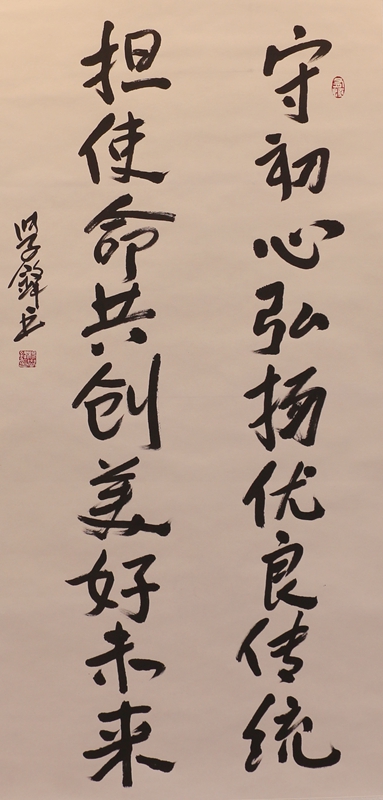 守初心弘扬优良传统
担使命共创美好未来
学锋书